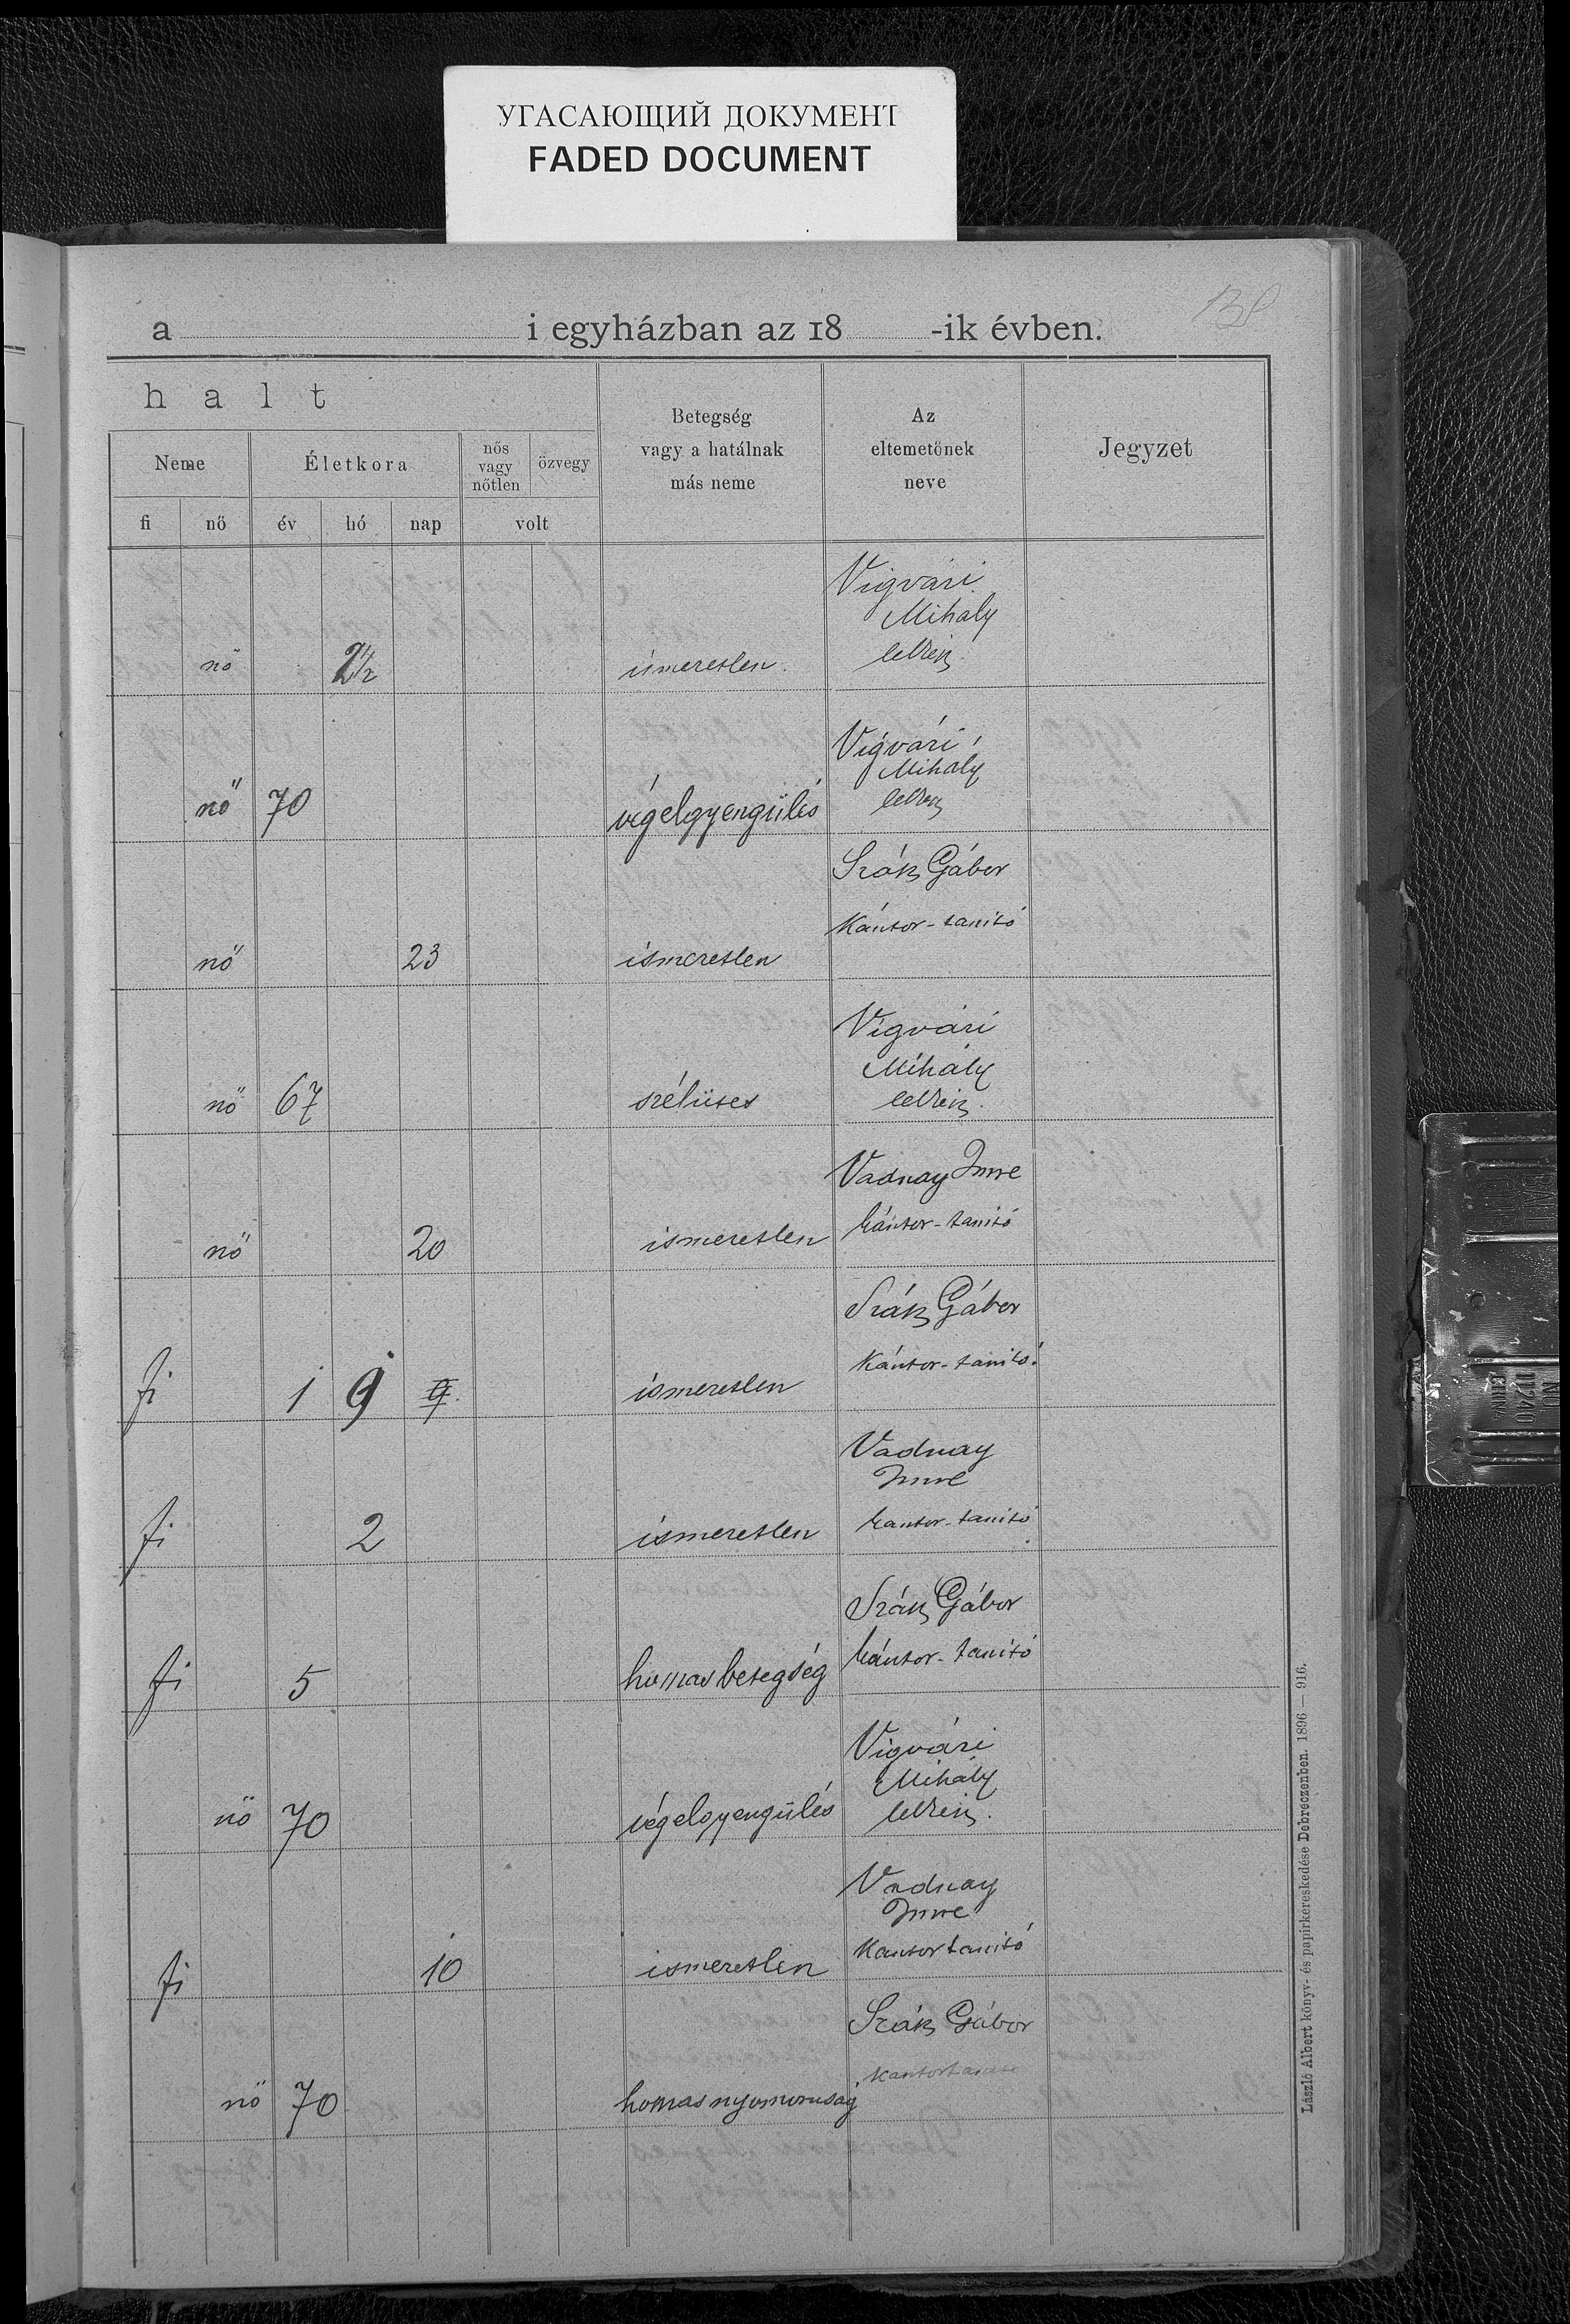 УГАСАЮЩИЙ ДОКУМЕНТ
FADED DOCUMENT
a i egyházban az 18 -ik évben.
halt
Neme Életkora nős vagy nőtlen özvegy
fi nő év hó nap volt
Betegség
vagy a hatálnak
más neme
Az
eltemetőnek
neve
Jegyzet
Vigvári
Mihály
lelkész
nő 2 1/2 ismeretlen
Vigvári
Mihály
lelkész
nő 70 végelgyengülés
Szák Gábor
Kántor-tanító
nő 23 ismeretlen
Vigvári
Mihály
nő 67 szélütés lelkész.
Vadnay Imre
kántor-tanító
nő 20 ismeretlen
Szák Gábor
Kántor-tanító.
fi 1 9 ismeretlen
Vadnay
Imre
kantor-tanító
fi 2 ismeretlen
Szák Gábor
kántor-tanító
fi 5 betegség
Vigvári
Mihály
lelkész.
nő 70 végelgyengülés
Vadnay
Imre
Kantortanító
fi 10 ismeretlen
Szák Gábor
kantortanító
nő 70
László Albert könyv- és papirkereskedése Debreczenben. 1896 — 916.